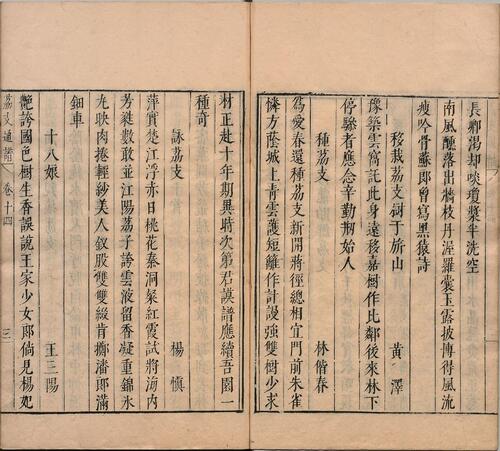 長卿渴却啖瓊漿半洗空
南風醺落出牆枝丹渥羅囊玉露披博得風流
瘦吟骨蘇郎曾寫黑猿詩
移栽荔支樹于旂山
黄澤
豫築雲窩託此身遠移嘉樹作比鄰後來林下
停驂者應念辛勤剏始人
種荔支
林偕春
為愛春還種荔支新開蔣徑總相宜門前朱雀
憐方蔭城上青雲護短籬作計謾強雙樹少求
材正赴十年期異時次第君謨譜應續吾園一
種奇
詠荔支
楊慎
萍實楚江浮赤日桃花秦洞粲紅霞試將海内
芳蕤數敢並江陽荔子誇雲液留香凝重錦氷
丸映肉捲輕紗美人釵股雙雙綴肯擲潘郎滿
鈿車
十八娘
王三陽
艷誇國色樹生香誤說王家少女郎倘見楊妃
荔支通譜
卷十四
三